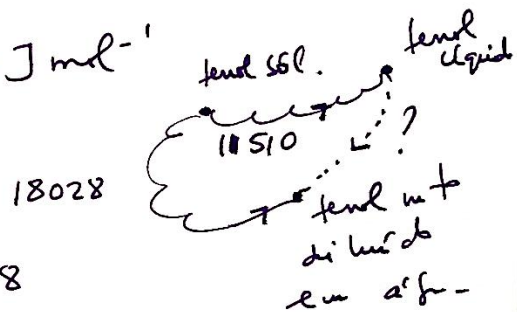 J mol⁻¹
fenol sól.
fenol
líquido
11510
?
18028
fenol mto
diluído
em água
8